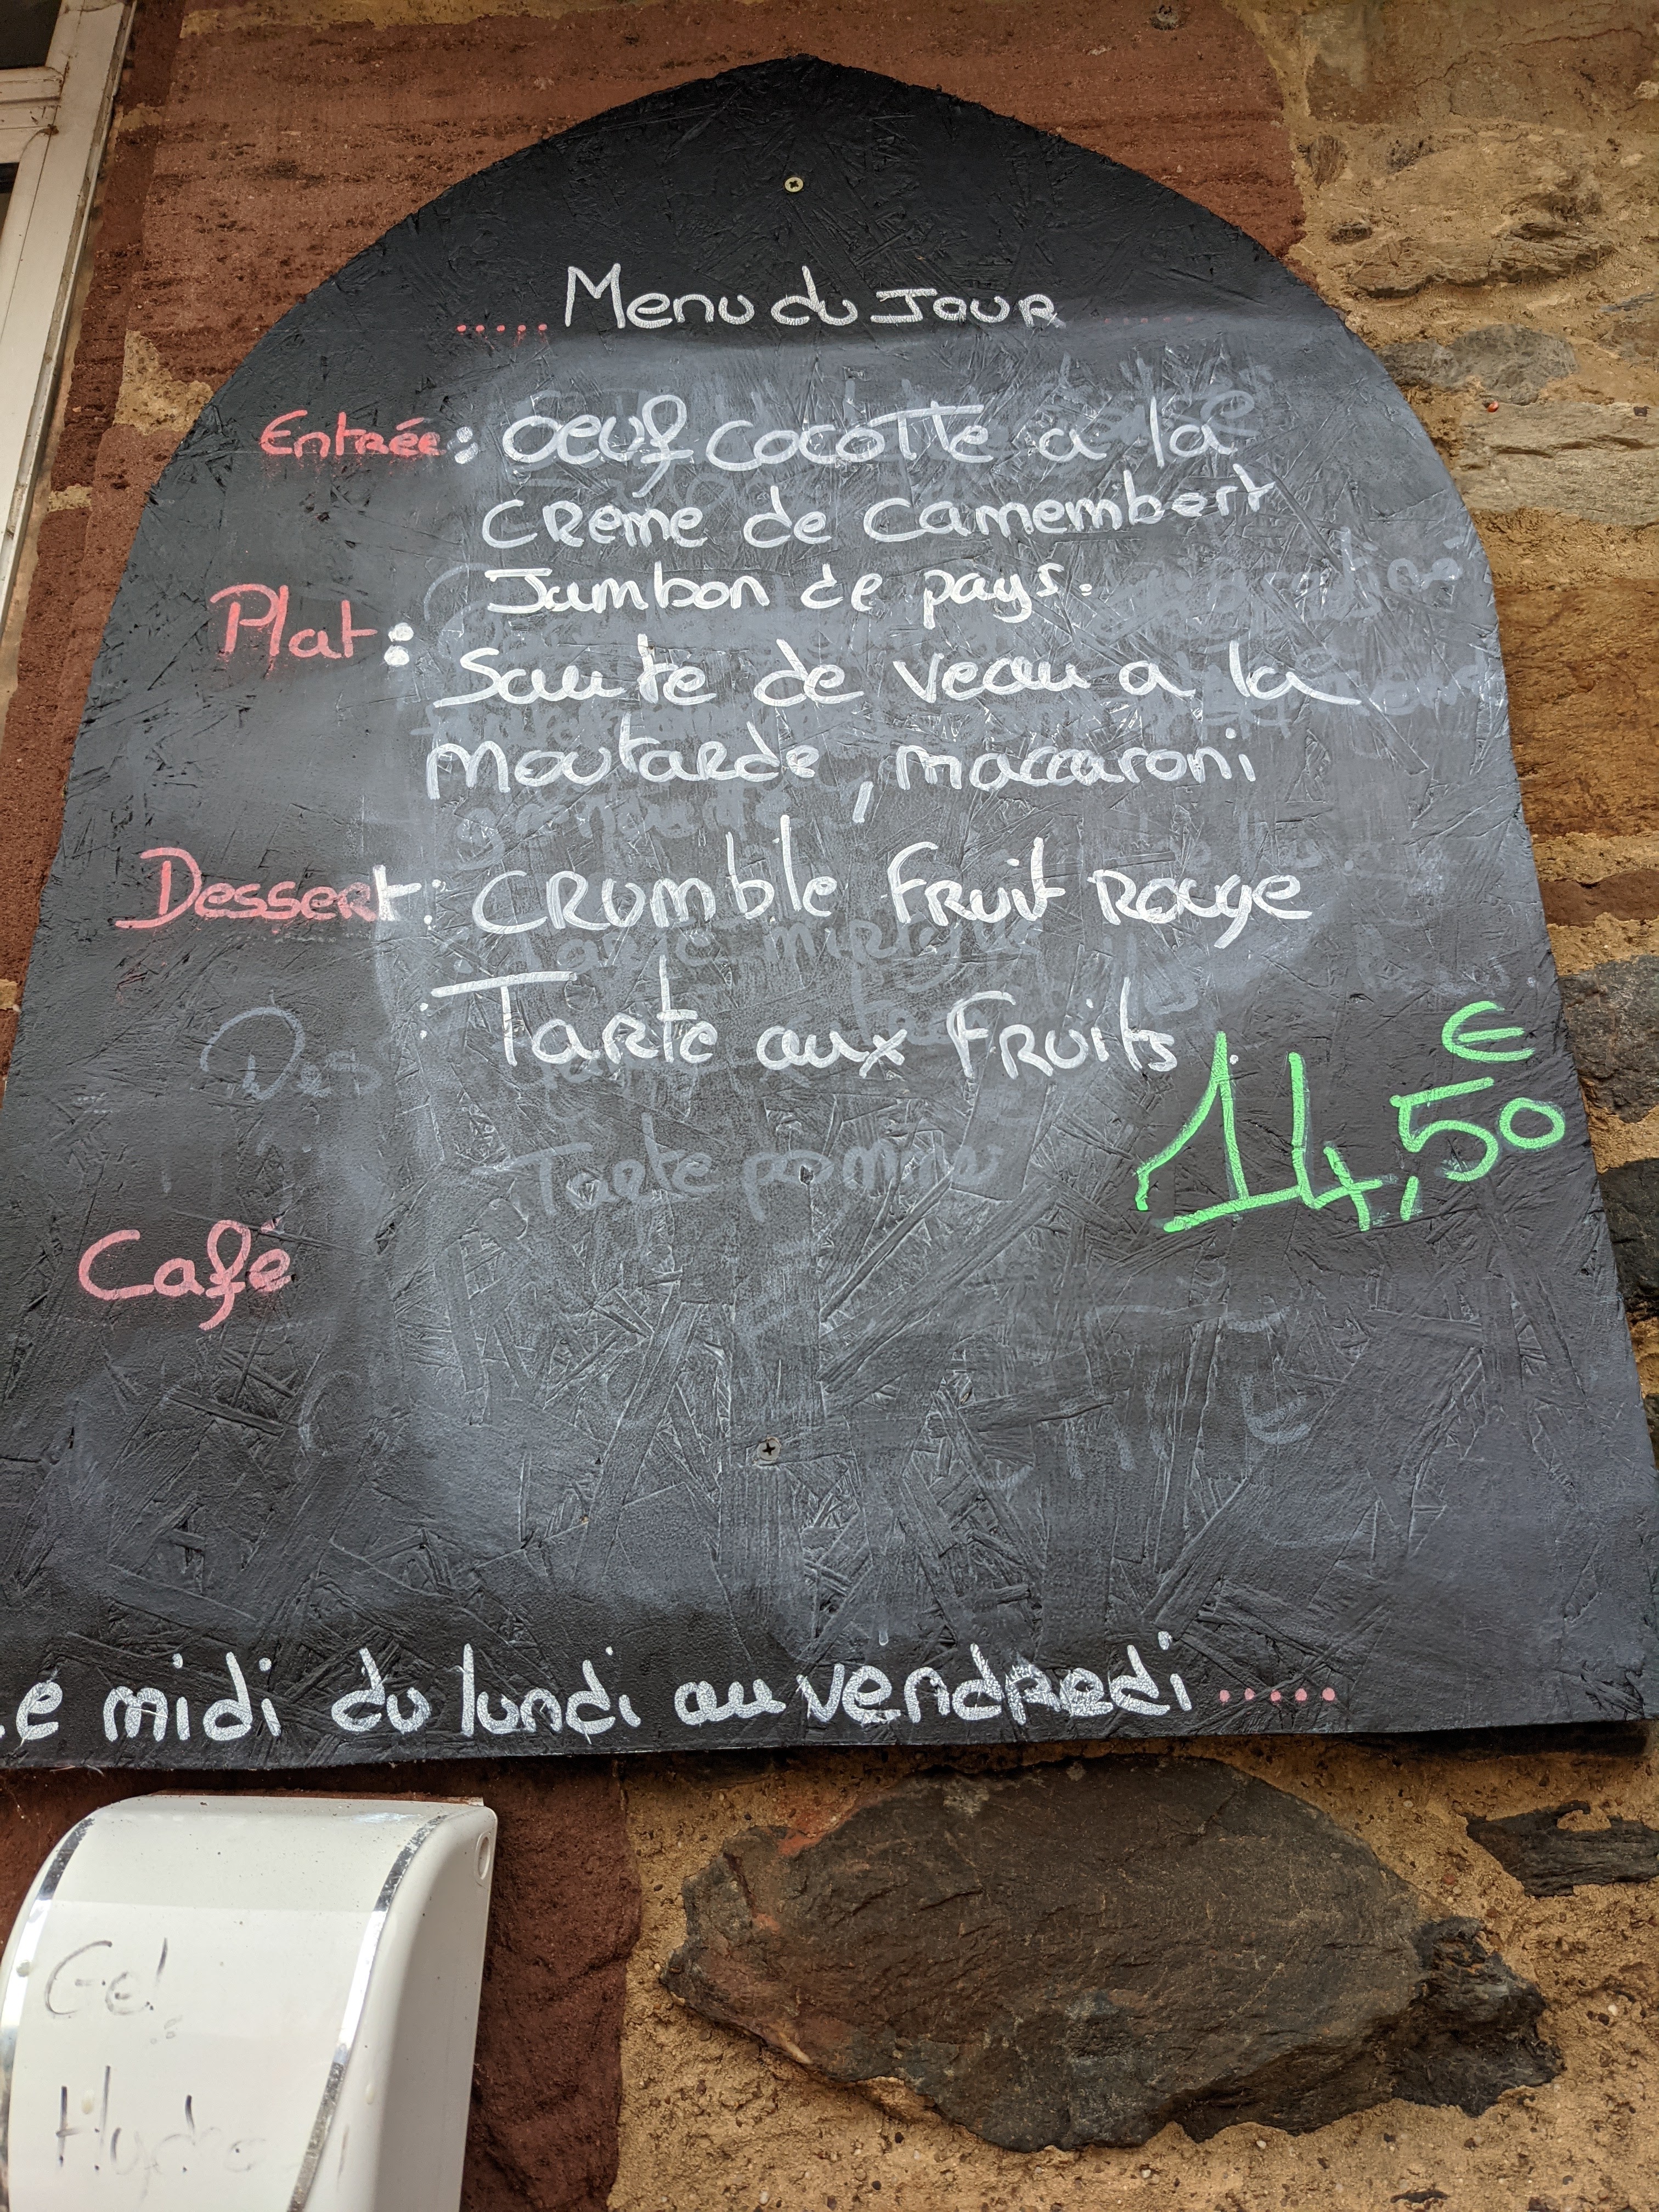 ..... Menu du Jour .....
Entrée : Oeuf cocotte a la
creme de Camembert
Jambon de pays.
Plat : Saute de veau a la
moutarde, maccaroni
Dessert : Crumble Fruit Rouge
: Tarte aux Fruits.
€
14,50
Des
Tarte pomme
Café
Le midi du lundi au vendredi .....
Gel
Hydro